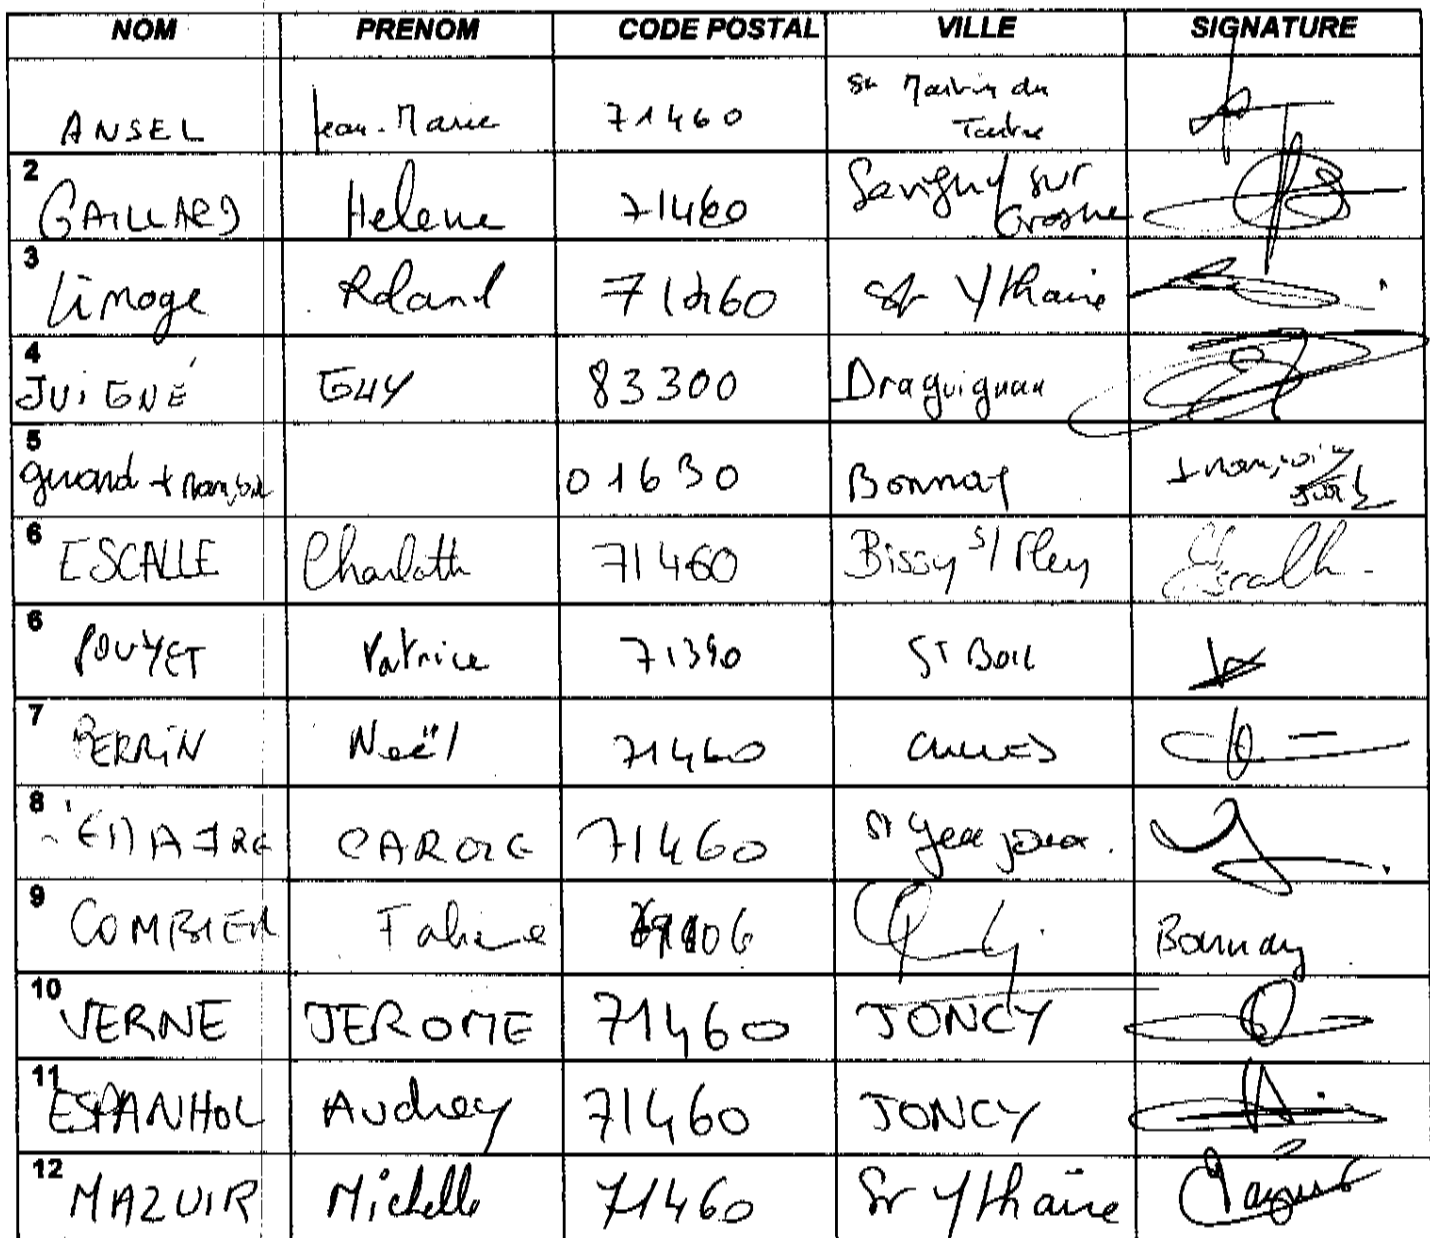 NOM PRENOM CODE POSTAL VILLE SIGNATURE
ANSEL Jean-Marie 71460 St Martin du
Tartre
2 GAILLARD Helene 71460 Savigny sur
Grosne
3 Limoge Roland 71460 St Ythaire
4 JUIGNÉ GUY 83300 Draguignan
5 01630 Bonnay
6 ESCALLE Charlotte 71460 Bissy s/ Fley
6 POUYET Patrice 71390 ST BOIL
7 PERRIN Noël 71460
8 CAROLE 71460
9 COMBIER Bonnay
10 VERNE JEROME 71460 JONCY
11 ESPANHOL Audrey 71460 JONCY
12 MAZUIR Michelle 71460 St Ythaire